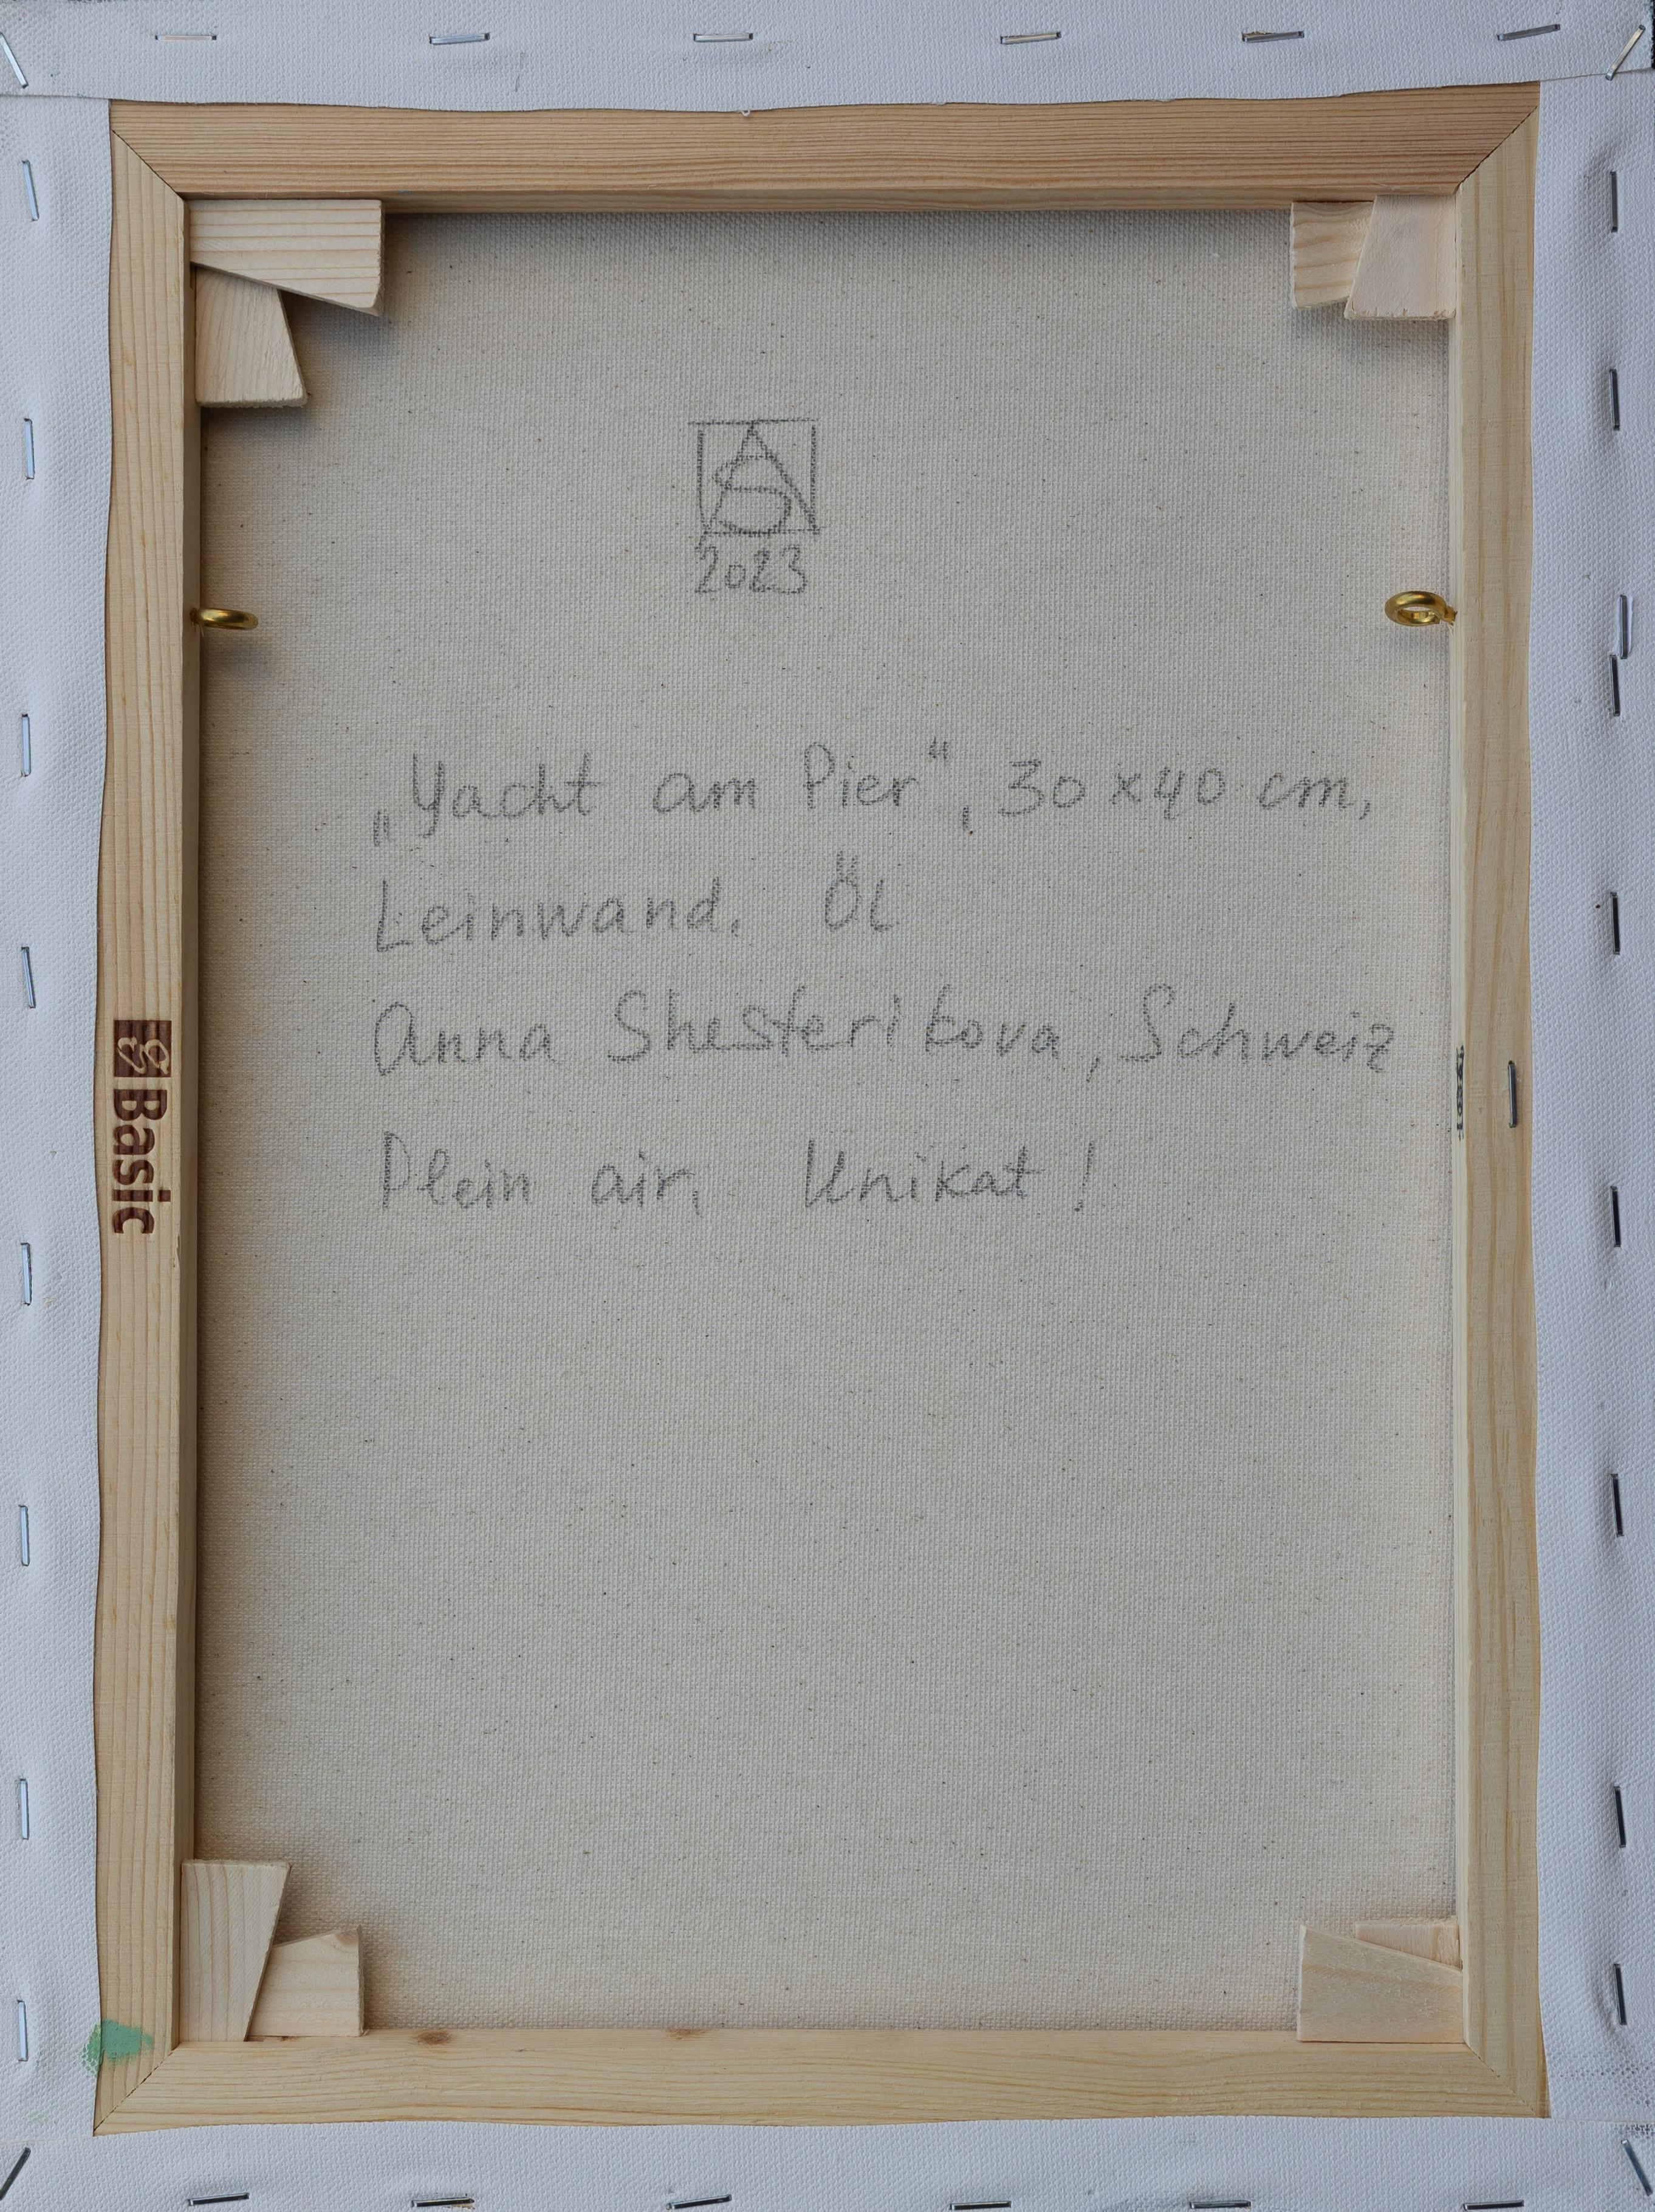 AS
2023
„Yacht am Pier“, 30 x 40 cm,
Leinwand, Öl
Anna Shesterikova, Schweiz
Plein air, Unikat!
Basic